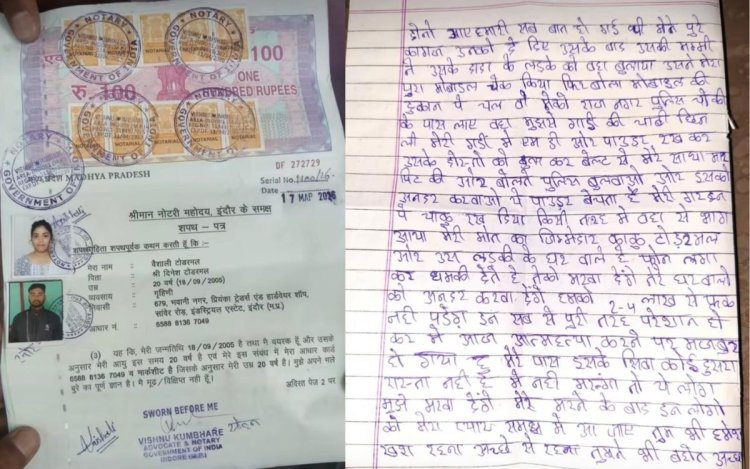 NOTARY
GOVERNMENT OF INDIA
NOTARIAL
रु. 100
ONE
HUNDRED RUPEES
100
मध्य प्रदेश MADHYA PRADESH
DF 272729
Serial No.
Date 17 MAR 2026
श्रीमान नोटरी महोदय, इंदौर के समक्ष
शपथ - पत्र
शपथपूर्वक कथन करती हूँ कि :-
मेरा नाम : वैशाली टोडरमल
पिता : श्री दिनेश टोडरमल
उम्र : 20 वर्ष (18/09/2005)
व्यवसाय : गृहिणी
निवासी : 679, भवानी नगर, प्रियंका ट्रेडर्स एंड हार्डवेयर शॉप,
सांवेर रोड, इंडस्ट्रियल एस्टेट, इंदौर (म.प्र.)
आधार नं. : 6588 8136 7049
(1) यह कि, मेरी जन्मतिथि 18/09/2005 है तथा मै वयस्क हूँ और उसके
अनुसार मेरी आयु इस समय 20 वर्ष है एवं मेरे इस संबंध में मेरा आधार कार्ड
6588 8136 7049 व मार्कशीट है जिसके अनुसार मेरी उम्र 20 वर्ष है। मुझे अपने भले
बुरे का पूर्ण ज्ञान है। मै मूढ/विक्षिप्त नहीं हूँ।
अविरत पेज 2 पर
SWORN BEFORE ME
VISHNU KUMBHARE
ADVOCATE & NOTARY
GOVERNMENT OF INDIA
INDORE
दोनो आए हमारी सब बात हो गई थी मेने पुरे
कागज उनको दे दिए उसके बाद उसकी मम्मी
ने उसके दादा के लडके को वहा बुलाया उसने मेरा
पुरा मोबाइल चेक किया फिर बोला मोबाइल की
दुकान पे चल वो मेको राज नगर पुलिस चोकी
के पास लाए वहा मुझसे गाडी की चाबी छिन
ली मेरी गाडी में एम डी ओर पाउडर रख कर
उसके दोस्तो को बुला कर बेल्ट से मेरे साथ मार
पिट की ओर बोलते पुलिस बुलवाओ ओर इसको
अन्दर करवाओ ये पाउडर बेचता है मेरी गरदन
पे चाकू रख दिया किसी तरह में वहा से भाग
आया मेरी मोत का जिम्मेदार टोडरमल
ओर उस लडकी के घर वाले है फोन लगा
कर धमकी देते है तेको मरवा देंगे तेरे घर वालो
को अन्दर करवा देंगे हमको 2-4 लाख से फरक
नही पडेगा इन सब से पुरी तरह परेशान हो
कर में आज आत्महत्या करने पर मजबुर
हो गया हु मेरे पास इसके सिवा कोई दुसरा
रास्ता नही है में नही मारूगा तो ये लोग
मुझे मरवा देंगे मेरे मरने के बाद इन लोगो
को मेरा प्यार समझ में आ जाए तुम भी हमेशा
खुश रहना अच्छे से रहना तुमने भी बहोत अच्छा